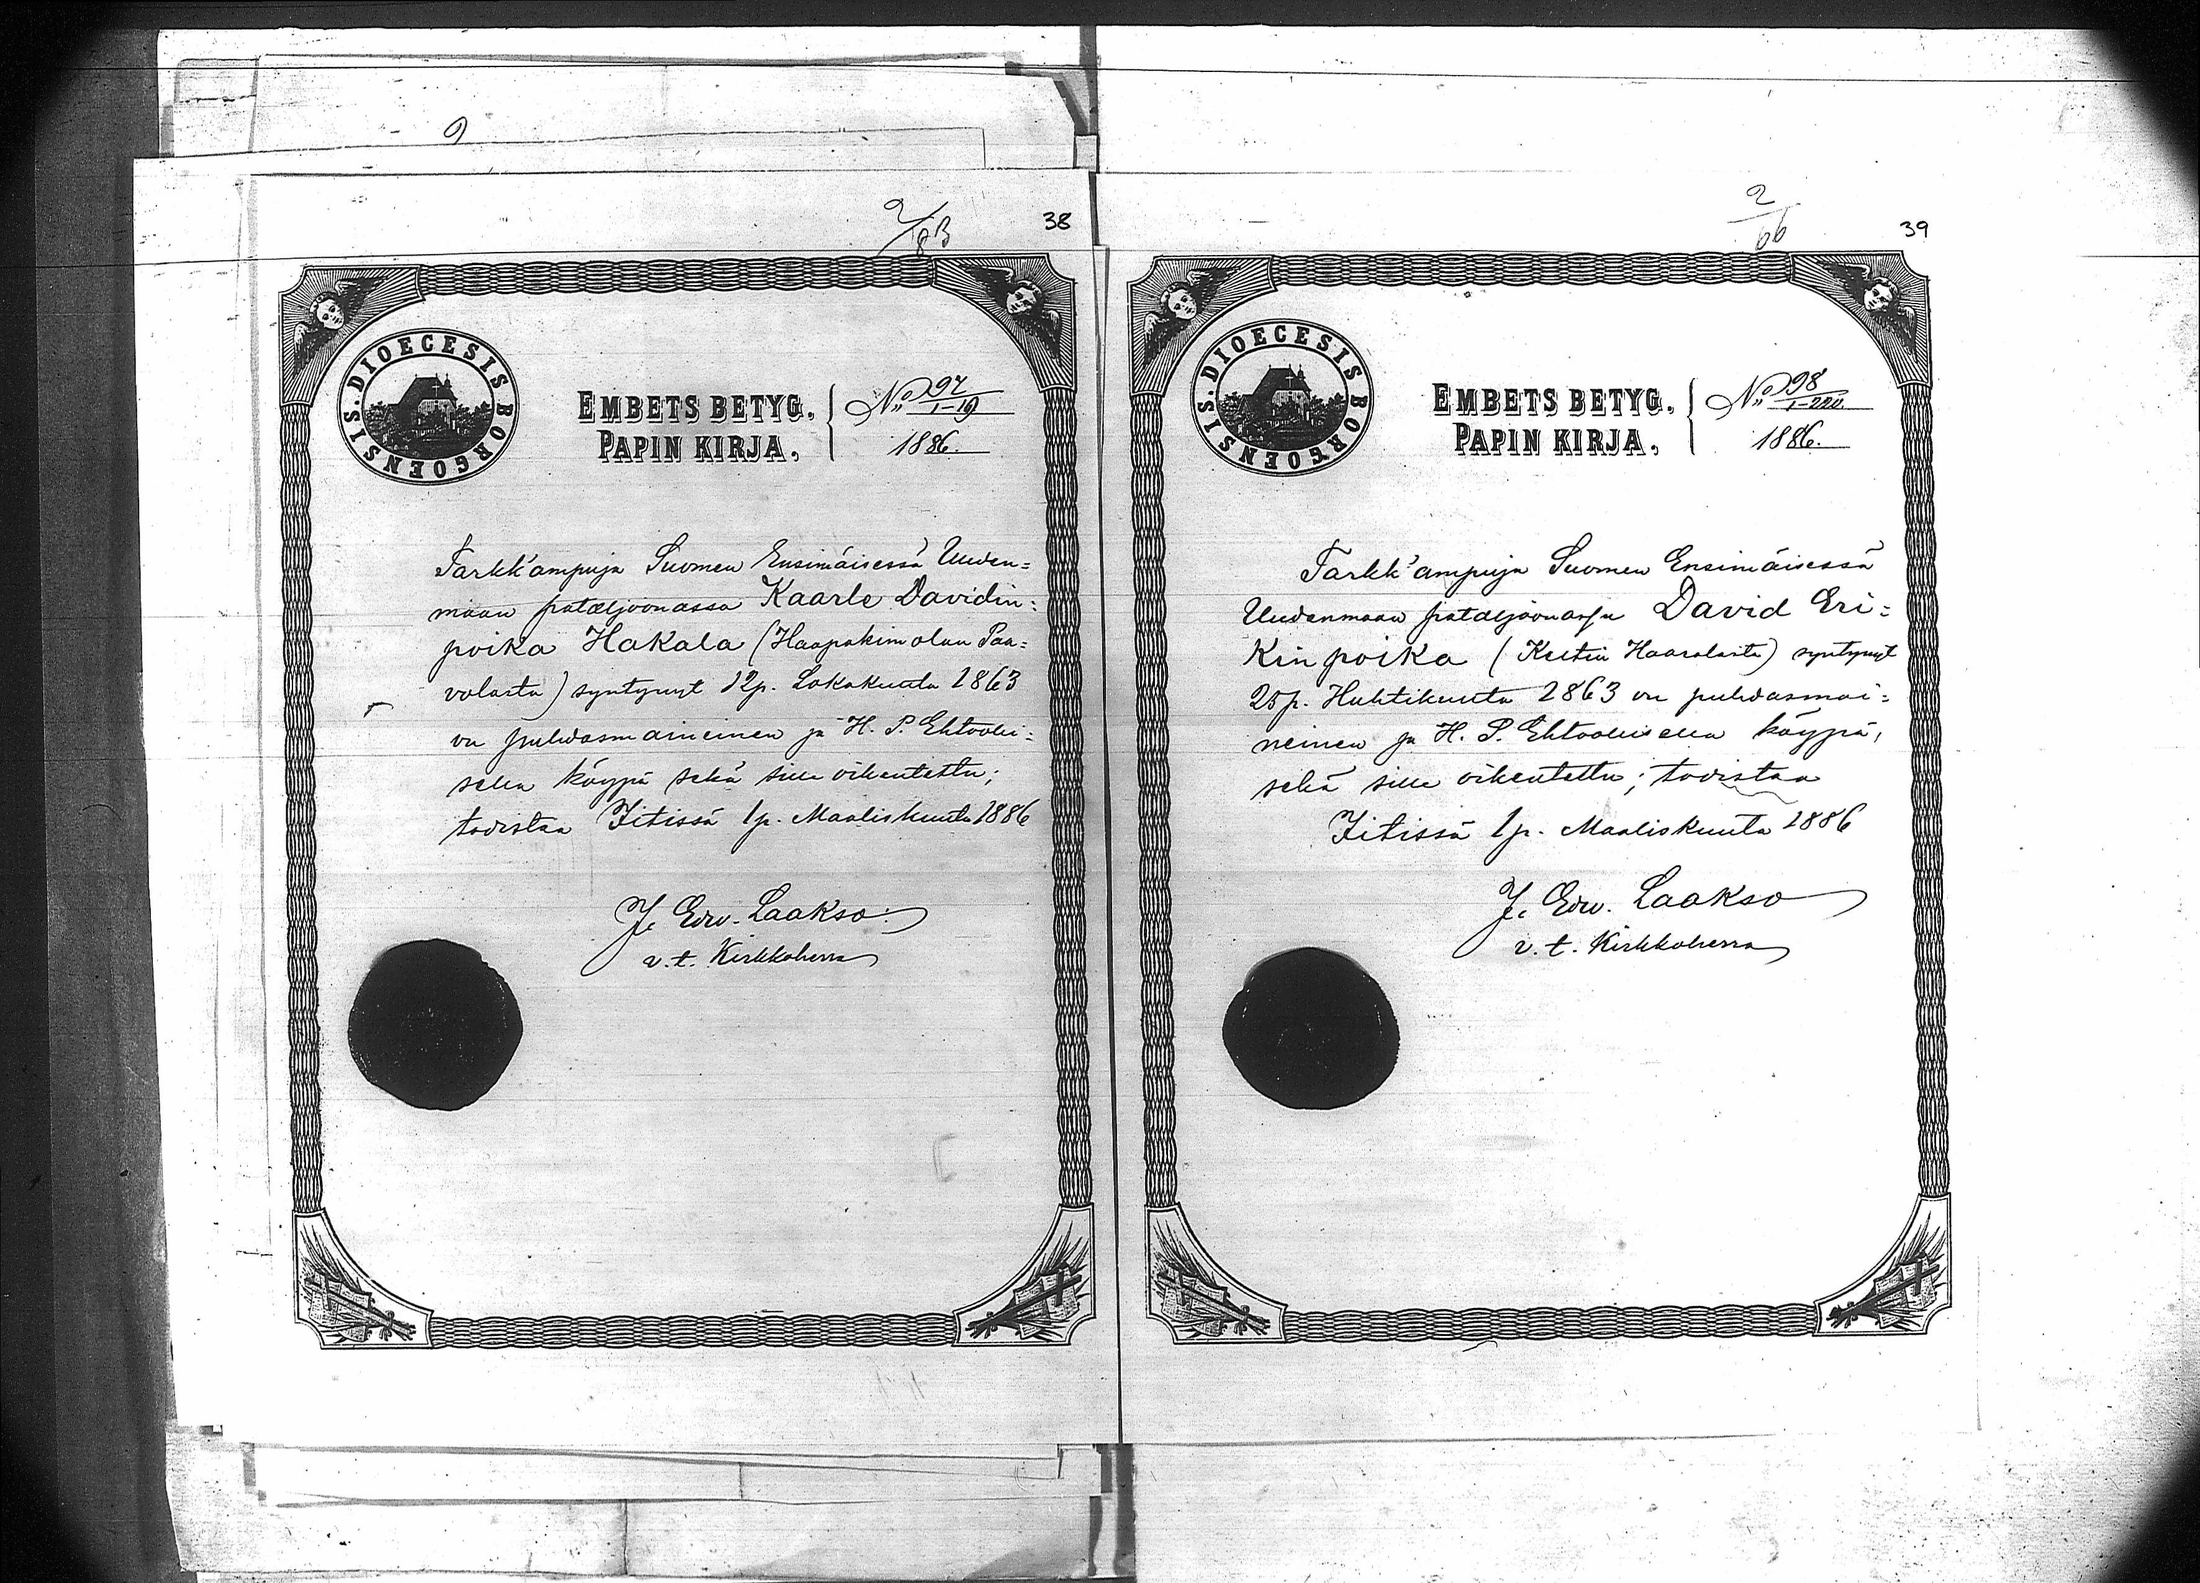 9
9/8B
38
DIOECESIS BORGOENSIS.
EMBETS BETYG.
PAPIN KIRJA.
No 97
I-19
1886.
Tarkk'ampuja Suomen Ensimäisessä Uuden=
maan pataljoonassa Kaarle Davidin=
poika Hakala (Haapakimolan Paa=
volasta) syntynyt 12p. Lokakuuta 1863
on puhdasmaineinen ja H. P. Ehtoolli=
sella käypä sekä sille oikeutettu;
todistaa Iitissä 1p. Maaliskuuta 1886
J. Edv. Laakso
v. t. Kirkkoherra
2/66
39
DIOECESIS BORGOENSIS.
EMBETS BETYG.
PAPIN KIRJA.
No 98
1886.
Tarkk'ampuja Suomen Ensimäisessä
Uudenmaan pataljoonassa David Eri=
kinpoika (Haaralasta) syntynyt
25p. Huhtikuuta 1863 on puhdasmai=
neinen ja H. P. Ehtoollisella käypä,
sekä sille oikeutettu; todistaa
Iitissä 1p. Maaliskuuta 1886
J. Edv. Laakso
v. t. Kirkkoherra